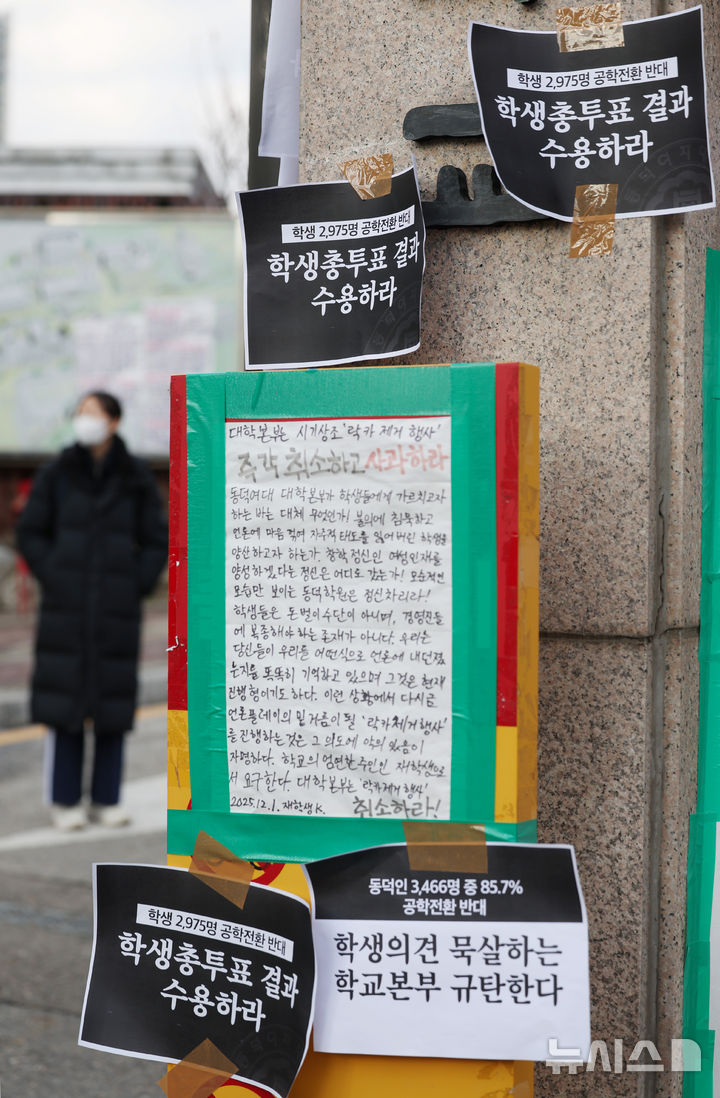 학생 2,975명 공학전환 반대
학생총투표 결과
수용하라
학생 2,975명 공학전환 반대
학생총투표 결과
수용하라
대학본부는 시기상조 '락카 제거 행사'
즉각 취소하고 사과하라
동덕여대 대학본부가 학생들에게 가르치고자
하는 바는 대체 무엇인가! 불의에 침묵하고
언론에 마음 먹어 자주적 태도를 잃어버린 학생을
양산하고자 하는가. 창학정신인 여성인재를
양성하겠다는 정신은 어디로 갔는가! 모순적인
모습만 보이는 동덕학원은 정신차리라!
학생들은 돈벌이수단이 아니며, 경영진들
에 복종해야 하는 존재가 아니다. 우리는
당신들이 우리를 어떤식으로 언론에 내던졌
는지를 똑똑히 기억하고 있으며 그것은 현재
진행형이기도 하다. 이런 상황에서 다시금
언론플레이의 밑거름이 될 '락카제거행사'
를 진행하는것은 그 의도에 악의 있음이
자명하다. 학교의 엄연한 주인인 재학생으로
서 요구한다. 대학본부는 '락카제거 행사'
2025.12.1. 재학생 K. 취소하라!
학생 2,975명 공학전환 반대
학생총투표 결과
수용하라
동덕인 3,466명 중 85.7%
공학전환 반대
학생의견 묵살하는
학교본부 규탄한다
뉴시스